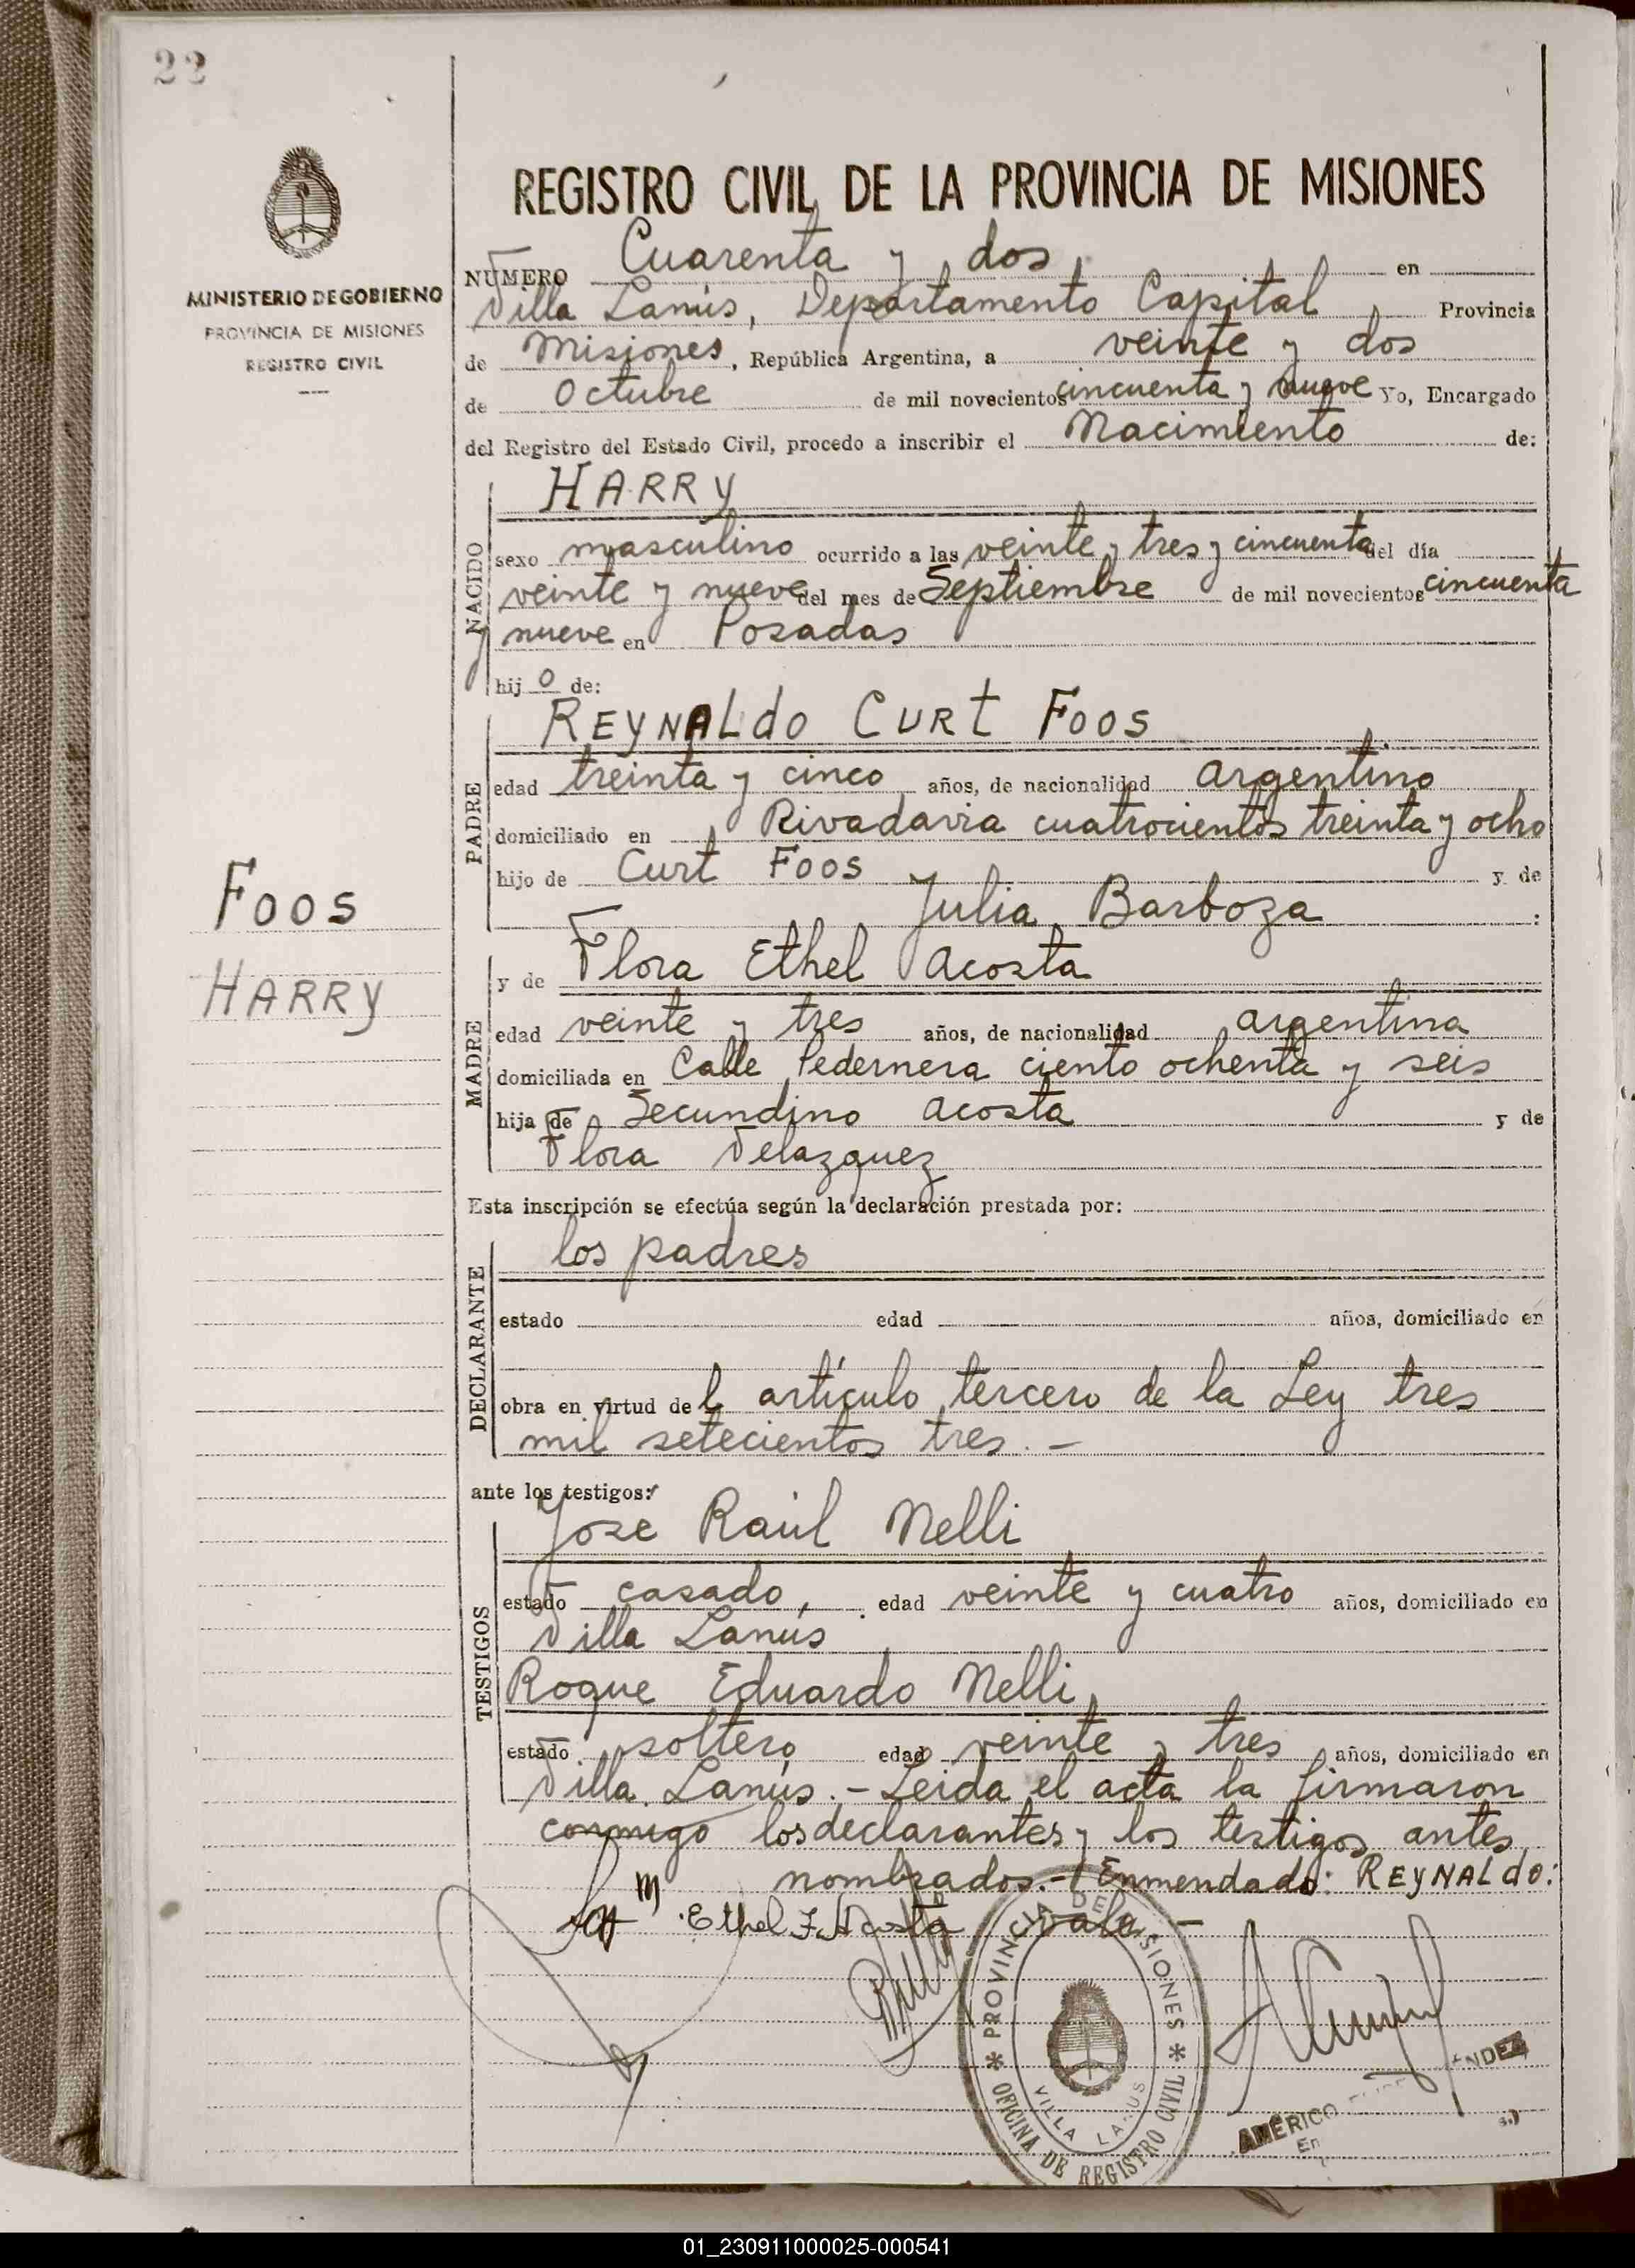 22
MINISTERIO DE GOBIERNO
PROVINCIA DE MISIONES
REGISTRO CIVIL
REGISTRO CIVIL DE LA PROVINCIA DE MISIONES
NUMERO Cuarenta y dos en
Villa Lanús, Departamento Capital Provincia
de Misiones, República Argentina, a veinte y dos
de Octubre de mil novecientos cincuenta y nueve Yo, Encargado
del Registro del Estado Civil, procedo a inscribir el Nacimiento de:
NACIDO
HARRY
sexo masculino ocurrido a las veinte y tres y cincuenta del día
veinte y nueve del mes de Septiembre de mil novecientos cincuenta
y nueve en Posadas
hijo de:
PADRE
REYNALdO CURt FOOS
edad treinta y cinco años, de nacionalidad argentino
domiciliado en Rivadavia cuatrocientos treinta y ocho
hijo de Curt Foos y de
Julia Barboza :
Foos
HARRY
MADRE
y de Flora Ethel Acosta
edad veinte y tres años, de nacionalidad argentina
domiciliada en Calle Pedernera ciento ochenta y seis
hija de Secundino Acosta y de
Flora Velazquez
Esta inscripción se efectúa según la declaración prestada por:
DECLARANTE
los padres
estado edad años, domiciliado en
obra en virtud del artículo tercero de la Ley tres
mil setecientos tres. -
ante los testigos:
TESTIGOS
Jose Raúl Nelli
estado casado, edad veinte y cuatro años, domiciliado en
Villa Lanús
Roque Eduardo Nelli
estado soltero edad veinte y tres años, domiciliado en
Villa Lanús. - Leida el acta la firmaron
conmigo los declarantes y los testigos antes
nombrados. - Enmendado: REYNALdO:
Ethel F. Acosta vale -
PROVINCIA DE MISIONES
OFICINA DE REGISTRO CIVIL
VILLA LANUS
AMÉRICO
En
01_230911000025-000541